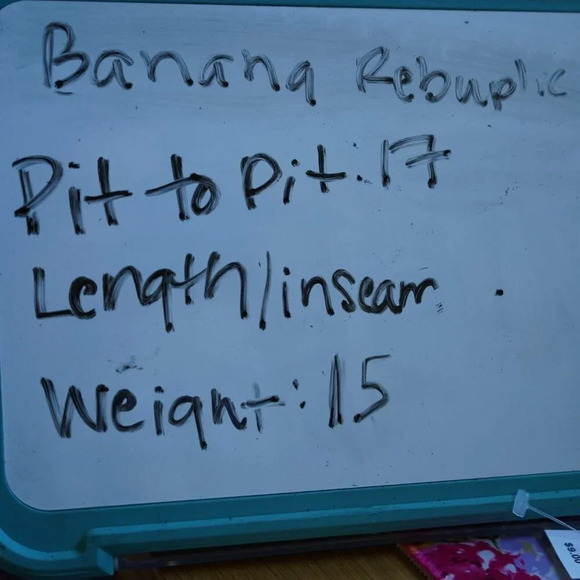 Banana Rebuplic
Pit to Pit. 17
Length/inseam .
Weight: 15
$9.00